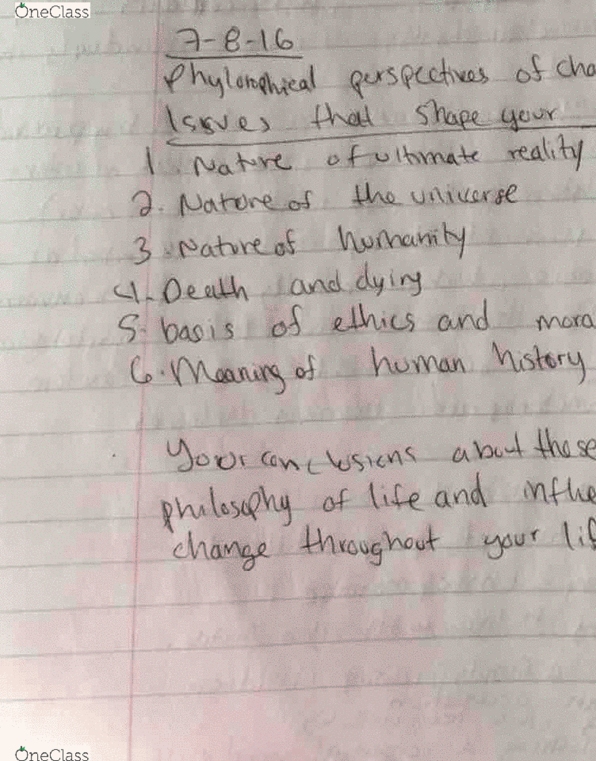 OneClass
7-8-16
Phylosophical perspectives of cha
Issues that shape your
1. Nature of ultimate reality
2. Nature of the universe
3. Nature of humanity
4. Death and dying
5. basis of ethics and mora
6. Meaning of human history
Your conclusions about these
philosophy of life and influe
change throughout your lif
OneClass